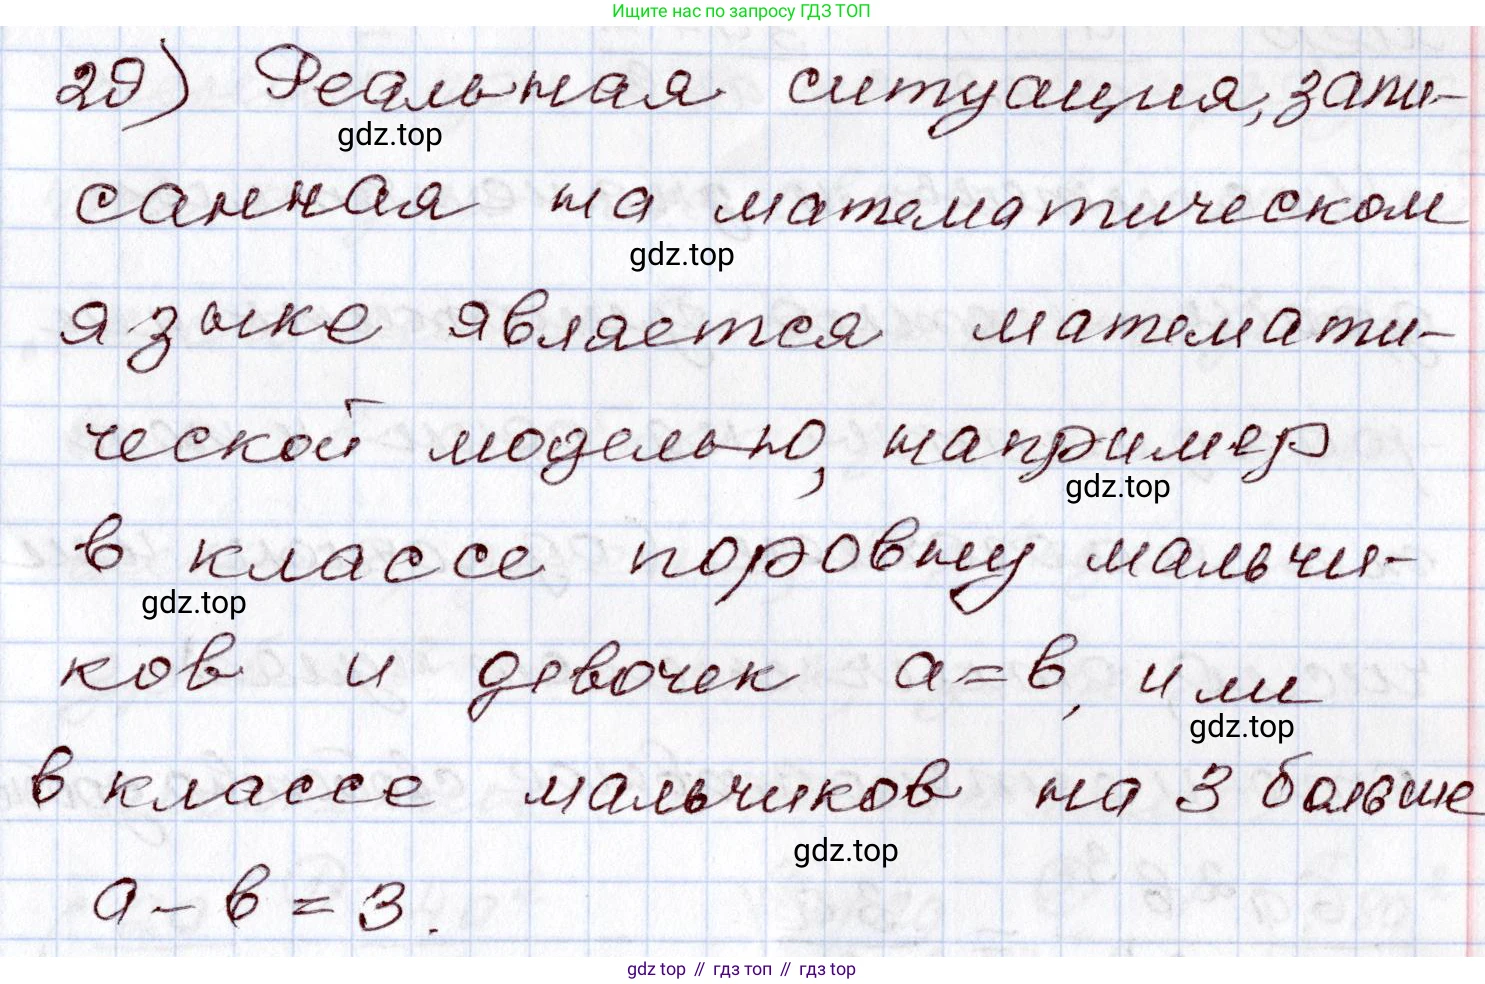 Ищите нас по запросу ГДЗ ТОП
29) Реальная ситуация, запи-
gdz.top
санная на математическом
gdz.top
языке является математи-
ческой моделью, например
gdz.top
в классе поровну мальчи-
gdz.top
ков и девочек a=b, или
gdz.top
в классе мальчиков на 3 больше
gdz.top
a-b=3.
gdz top // гдз топ // gdz top